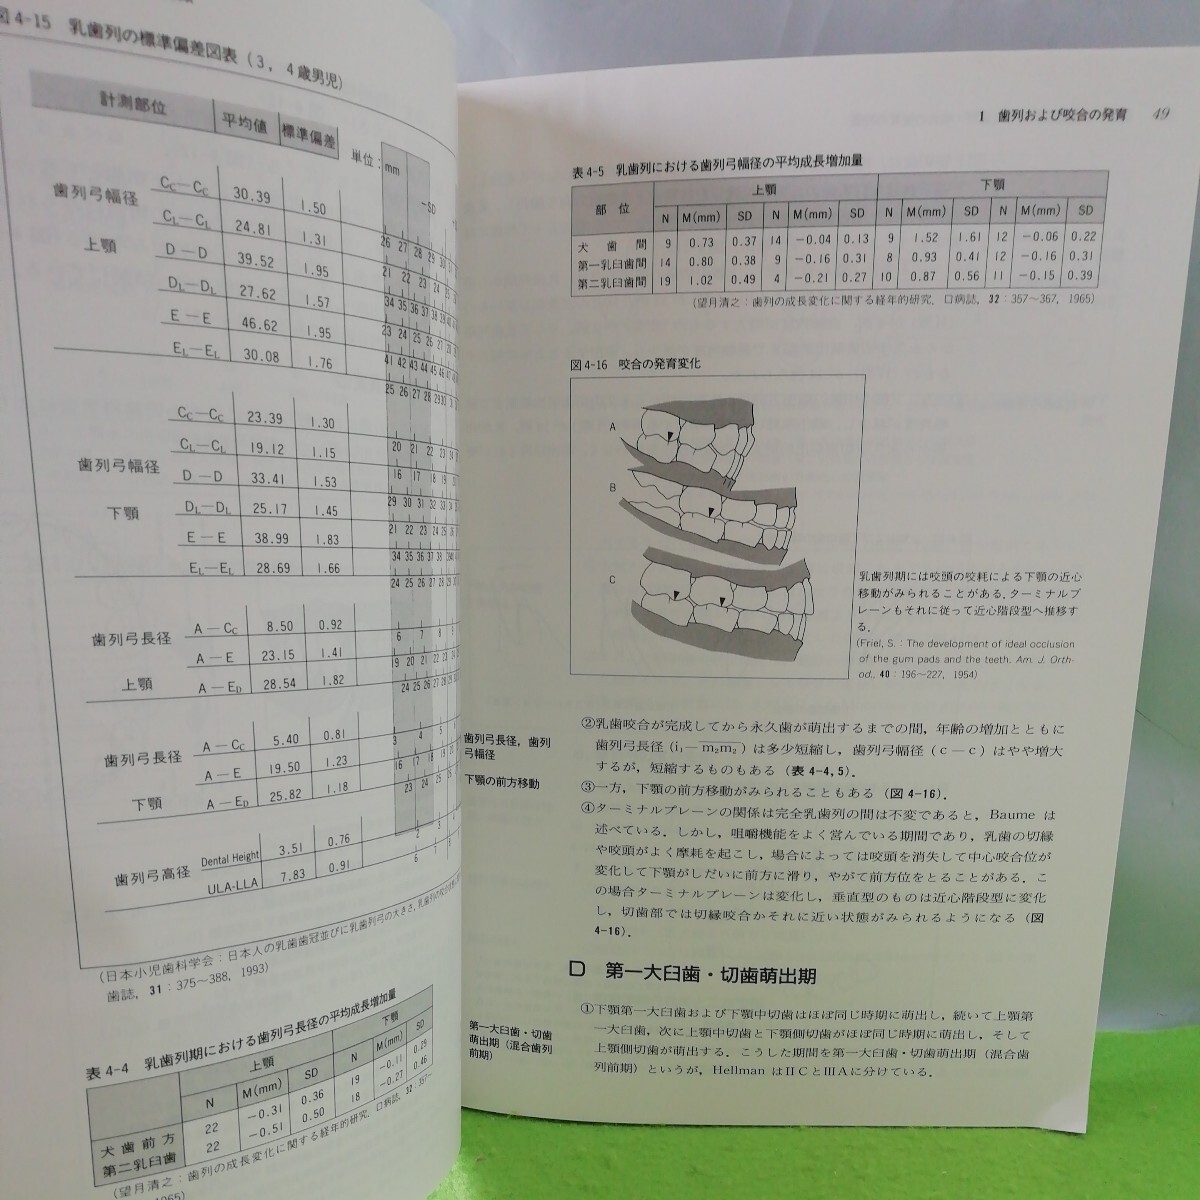 図4-15 乳歯列の標準偏差図表（3，4歳男児）
計測部位 平均値 標準偏差 単位：mm
−SD
歯列弓幅径 上顎
CC−CC 30.39 1.50 26 27 28 29
CL−CL 24.81 1.31 21 22 23 24
D−D 39.52 1.95 34 35 36 37 38
DL−DL 27.62 1.57 23 24 25 26
E−E 46.62 1.95 41 42 43 44 45
EL−EL 30.08 1.76 25 26 27 28 29 30
歯列弓幅径 下顎
CC−CC 23.39 1.30 20 21 22 23
CL−CL 19.12 1.15 16 17 18
D−D 33.41 1.53 29 30 31 32 33
DL−DL 25.17 1.45 21 22 23 24
E−E 38.99 1.83 34 35 36 37 38
EL−EL 28.69 1.66 24 25 26 27 28 29
歯列弓長径 上顎
A−CC 8.50 0.92 6 7 8 9
A−E 23.15 1.41 19 20 21 22 23
A−ED 28.54 1.82 24 25 26 27 28 29
歯列弓長径 下顎
A−CC 5.40 0.81 3 4 5
A−E 19.50 1.23 16 17 18 19
A−ED 25.82 1.18 23 24 25
歯列弓高径
Dental Height 3.51 0.76 2
ULA-LLA 7.83 0.91 6 7
（日本小児歯科学会：日本人の乳歯歯冠並びに乳歯列弓の大きさ，乳歯列の咬合状態
歯誌，31：375〜388，1993）
表4-4 乳歯列期における歯列弓長径の平均成長増加量
上顎 下顎
N M(mm) SD N M(mm) SD
犬歯前方 22 −0.31 0.36 19 −0.11 0.29
第二乳臼歯 22 −0.51 0.50 18 −0.27 0.46
（望月清之：歯列の成長変化に関する経年的研究，口病誌，32：357〜
1965）
1 歯列および咬合の発育 49
表4-5 乳歯列における歯列弓幅径の平均成長増加量
部位 上顎 下顎
N M(mm) SD N M(mm) SD N M(mm) SD N M(mm) SD
犬歯間 9 0.73 0.37 14 −0.04 0.13 9 1.52 1.61 12 −0.06 0.22
第一乳臼歯間 14 0.80 0.38 9 −0.16 0.31 8 0.93 0.41 12 −0.16 0.31
第二乳臼歯間 19 1.02 0.49 4 −0.21 0.27 10 0.87 0.56 11 −0.15 0.39
（望月清之：歯列の成長変化に関する経年的研究，口病誌，32：357〜367，1965）
図4-16 咬合の発育変化
A
B
C
乳歯列期には咬頭の咬耗による下顎の近心
移動がみられることがある．ターミナルプ
レーンもそれに従って近心階段型へ推移す
る．
(Friel, S. : The development of ideal occlusion
of the gum pads and the teeth. Am. J. Orth-
od., 40 : 196〜227, 1954)
歯列弓長径，歯列
弓幅径
下顎の前方移動
②乳歯咬合が完成してから永久歯が萌出するまでの間，年齢の増加とともに
歯列弓長径（i₁−m₂m₂）は多少短縮し，歯列弓幅径（c−c）はやや増大
するが，短縮するものもある（表4-4,5）．
③一方，下顎の前方移動がみられることもある（図4-16）．
④ターミナルプレーンの関係は完全乳歯列の間は不変であると，Baume は
述べている．しかし，咀嚼機能をよく営んでいる期間であり，乳歯の切縁
や咬頭がよく摩耗を起こし，場合によっては咬頭を消失して中心咬合位が
変化して下顎がしだいに前方に滑り，やがて前方位をとることがある．こ
の場合ターミナルプレーンは変化し，垂直型のものは近心階段型に変化
し，切歯部では切縁咬合かそれに近い状態がみられるようになる（図
4-16）．
D 第一大臼歯・切歯萌出期
第一大臼歯・切歯
萌出期（混合歯列
前期）
①下顎第一大臼歯および下顎中切歯はほぼ同じ時期に萌出し，続いて上顎第
一大臼歯，次に上顎中切歯と下顎側切歯がほぼ同じ時期に萌出し，そして
上顎側切歯が萌出する．こうした期間を第一大臼歯・切歯萌出期（混合歯
列前期）というが，Hellman はⅡCとⅢAに分けている．